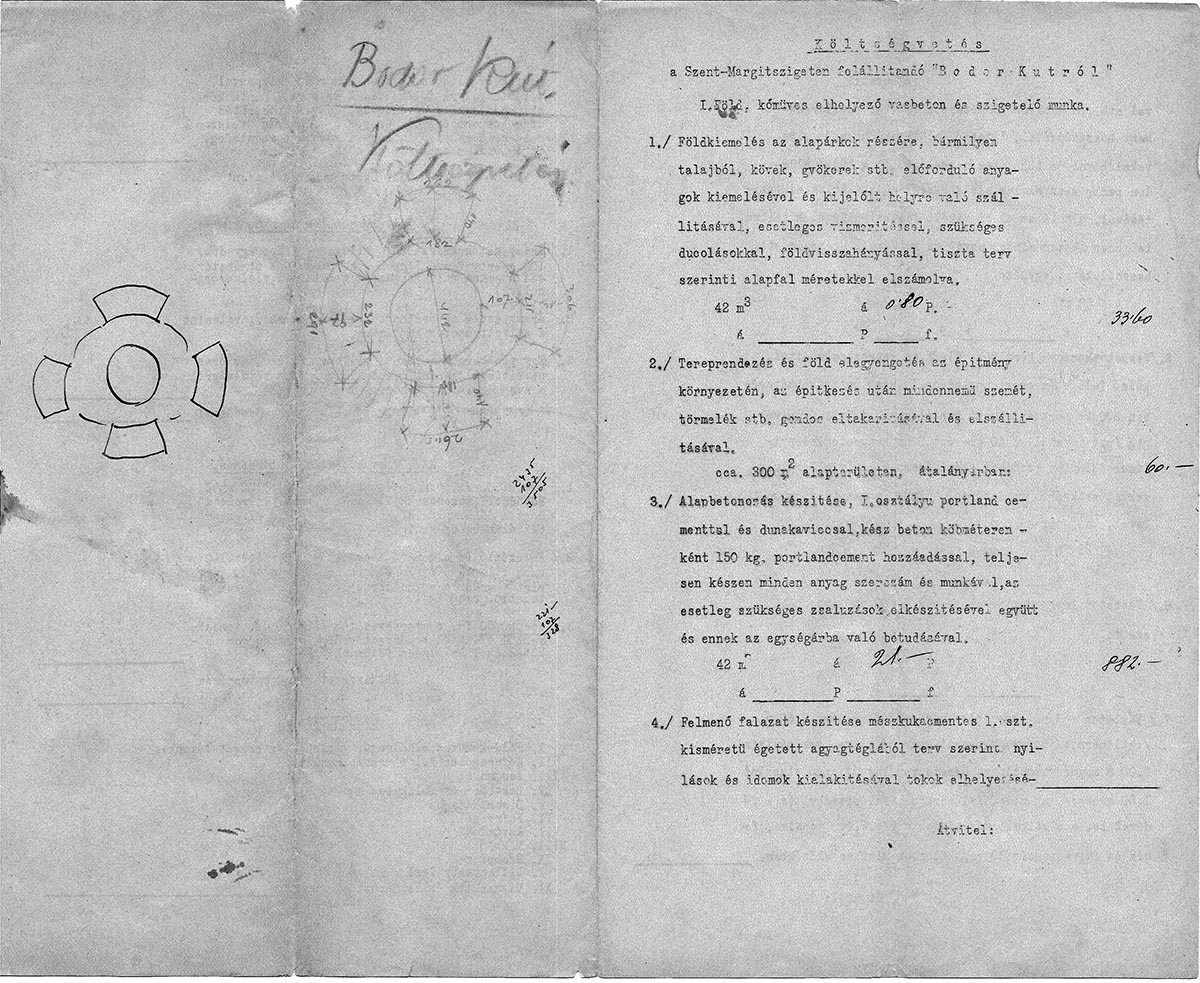 Bodor Kút.
Költségvetés
182
107
232
142
291
306
2435
107
3505
221-
107
328
Költségvetés
a Szent-Margitszigeten fölállitandó "Bodor-Kutról"
I.Föld, kőmüves elhelyező vasbeton és szigetelő munka.
1./ Földkiemelés az alapárkok részére, bármilyen
talajból, kövek, gyökerek stb. előforduló anya-
gok kiemelésével és kijelölt helyre való szál -
litásával, esetleges vizmeritéssel, szükséges
ducolásokkal, földvisszahányással, tiszta terv
szerinti alapfal méretekkel elszámolva.
42 m3 á 0.80 P. - 33.60
á P f.
2./ Tereprendezés és föld elegyengetés az épitmény
környezetén, az épitkezés után mindennemü szemét,
törmelék stb. gondos eltakaritásával és elszálli-
tásával.
cca. 300 m2 alapterületen, átalányárban: 60.—
3./ Alapbetonozás készitése, I.osztályu portland ce-
menttel és dunakaviccsal,kész beton köbméteren -
ként 150 kg. portlandcement hozzáadással, telje-
sen készen minden anyag szerszám és munkával,az
esetleg szükséges zsaluzások elkészitésével együtt
és ennek az egységárba való betudásával.
42 m á 21.— P 882.—
á P f
4./ Felmenő falazat készitése mészkukacmentes I.oszt.
kisméretü égetett agyagtéglából terv szerint nyi-
lások és idomok kialakitásával tokok elhelyezésé-
Átvitel: